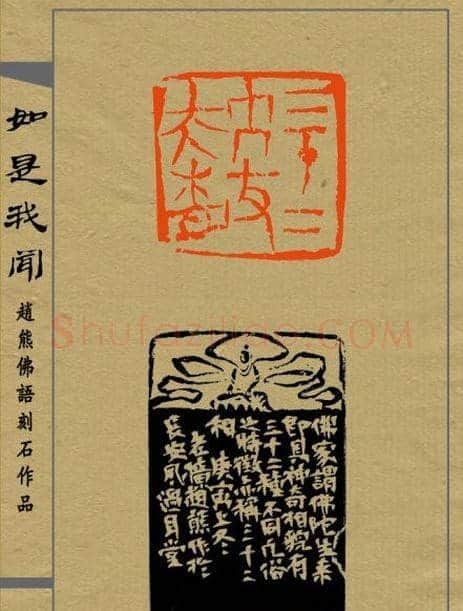 如是我聞
趙熊佛語刻石作品
三十二
佛家謂佛陀生来
即具神奇相貌有
三十二種不同凡俗
之特徵亦稱三十二
相 庚寅上冬
趙熊作於
長安風過耳堂